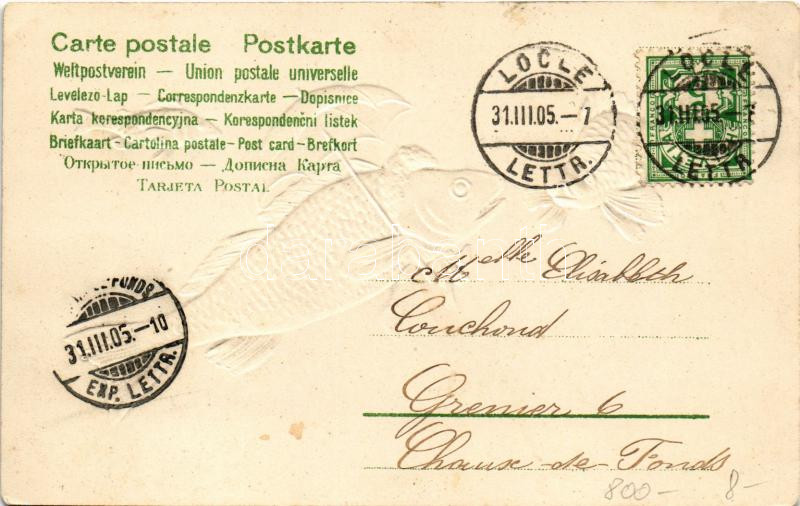 Carte postale Postkarte
Weltpostverein — Union postale universelle
Levelezo-Lap — Correspondenzkarte — Dopisnice
Karta korespondencyjna — Korespondenční listek
Briefkaart - Cartolina postale - Post card - Brefkort
Открытое письмо — Дописна Карта
TARJETA POSTAL
LOCLE
31.III.05.-7
LETTR.
LOCLE
31.III.05.
LETTR.
FRANCO
Melle Elisabeth
Couchoud
Grenier 6
Chaux-de-Fonds
FONDS
31.III.05.-10
EXP. LETTR.
800- 8-